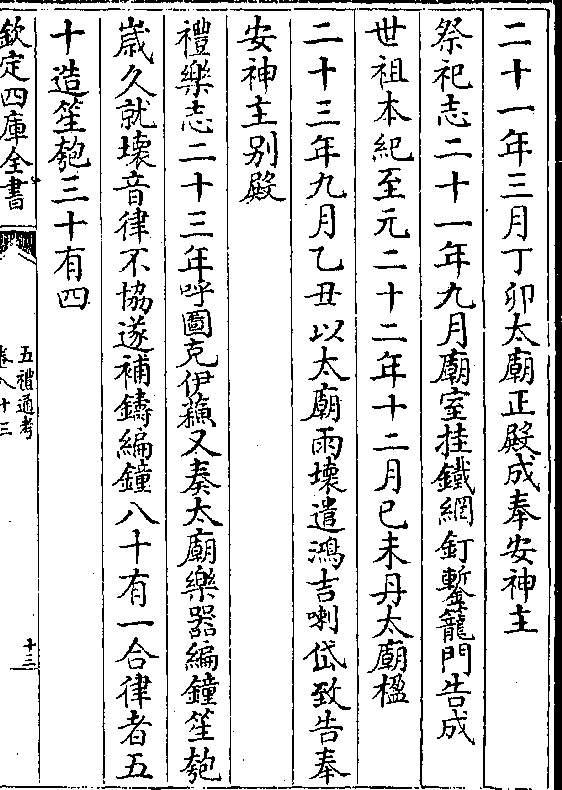 二十一年三月丁卯太廟正殿成奉安神主
祭祀志二十一年九月廟室挂鐵網釘鏨籠門告成
世祖本紀至元二十二年十二月已未丹太廟楹
二十三年九月乙丑以太廟雨壞遣鴻吉喇岱致告奉
安神主别殿
禮樂志二十三年呼圖克伊蘓又奏太廟樂器編鐘笙匏
嵗久就壞音律不協遂補鑄編鐘八十有一合律者五
十造笙匏三十有四
欽定四庫全書
五禮通考
卷八十三
十三